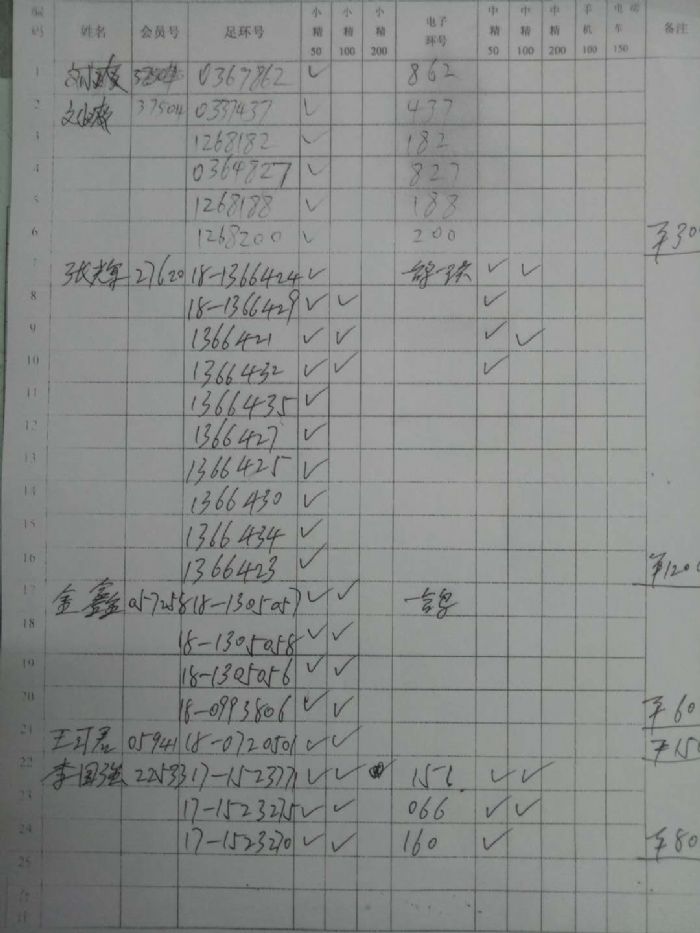 编码 姓名 会员号 足环号 小精50 小精100 小精200 电子环号 中精50 中精100 中精200 手机100 电动车150 备注
1 0367862 ✓ 862
2 37504 0337437 ✓ 437
3 1268182 ✓ 182
4 0364827 ✓ 827
5 1268188 ✓ 188
6 1268200 ✓ 200 ¥300
7 27620 18-1366424 ✓ ✓ ✓
8 18-1366429 ✓ ✓ ✓
9 1366421 ✓ ✓ ✓ ✓
10 1366432 ✓ ✓ ✓
11 1366435 ✓
12 1366427 ✓
13 1366425 ✓
14 1366430 ✓
15 1366434 ✓
16 1366423 ✓ ¥120
17 金鑫 057258 18-1305057 ✓ ✓
18 18-1305058 ✓ ✓
19 18-1305056 ✓ ✓
20 18-0993806 ✓ ✓ ¥60
21 05941 18-0720501 ✓ ✓ ¥15
22 李国强 22533 17-1523271 ✓ ✓ ✓ ✓
23 17-1523275 ✓ ✓ 066 ✓ ✓
24 17-1523270 ✓ ✓ 160 ✓ ¥80
25
合计